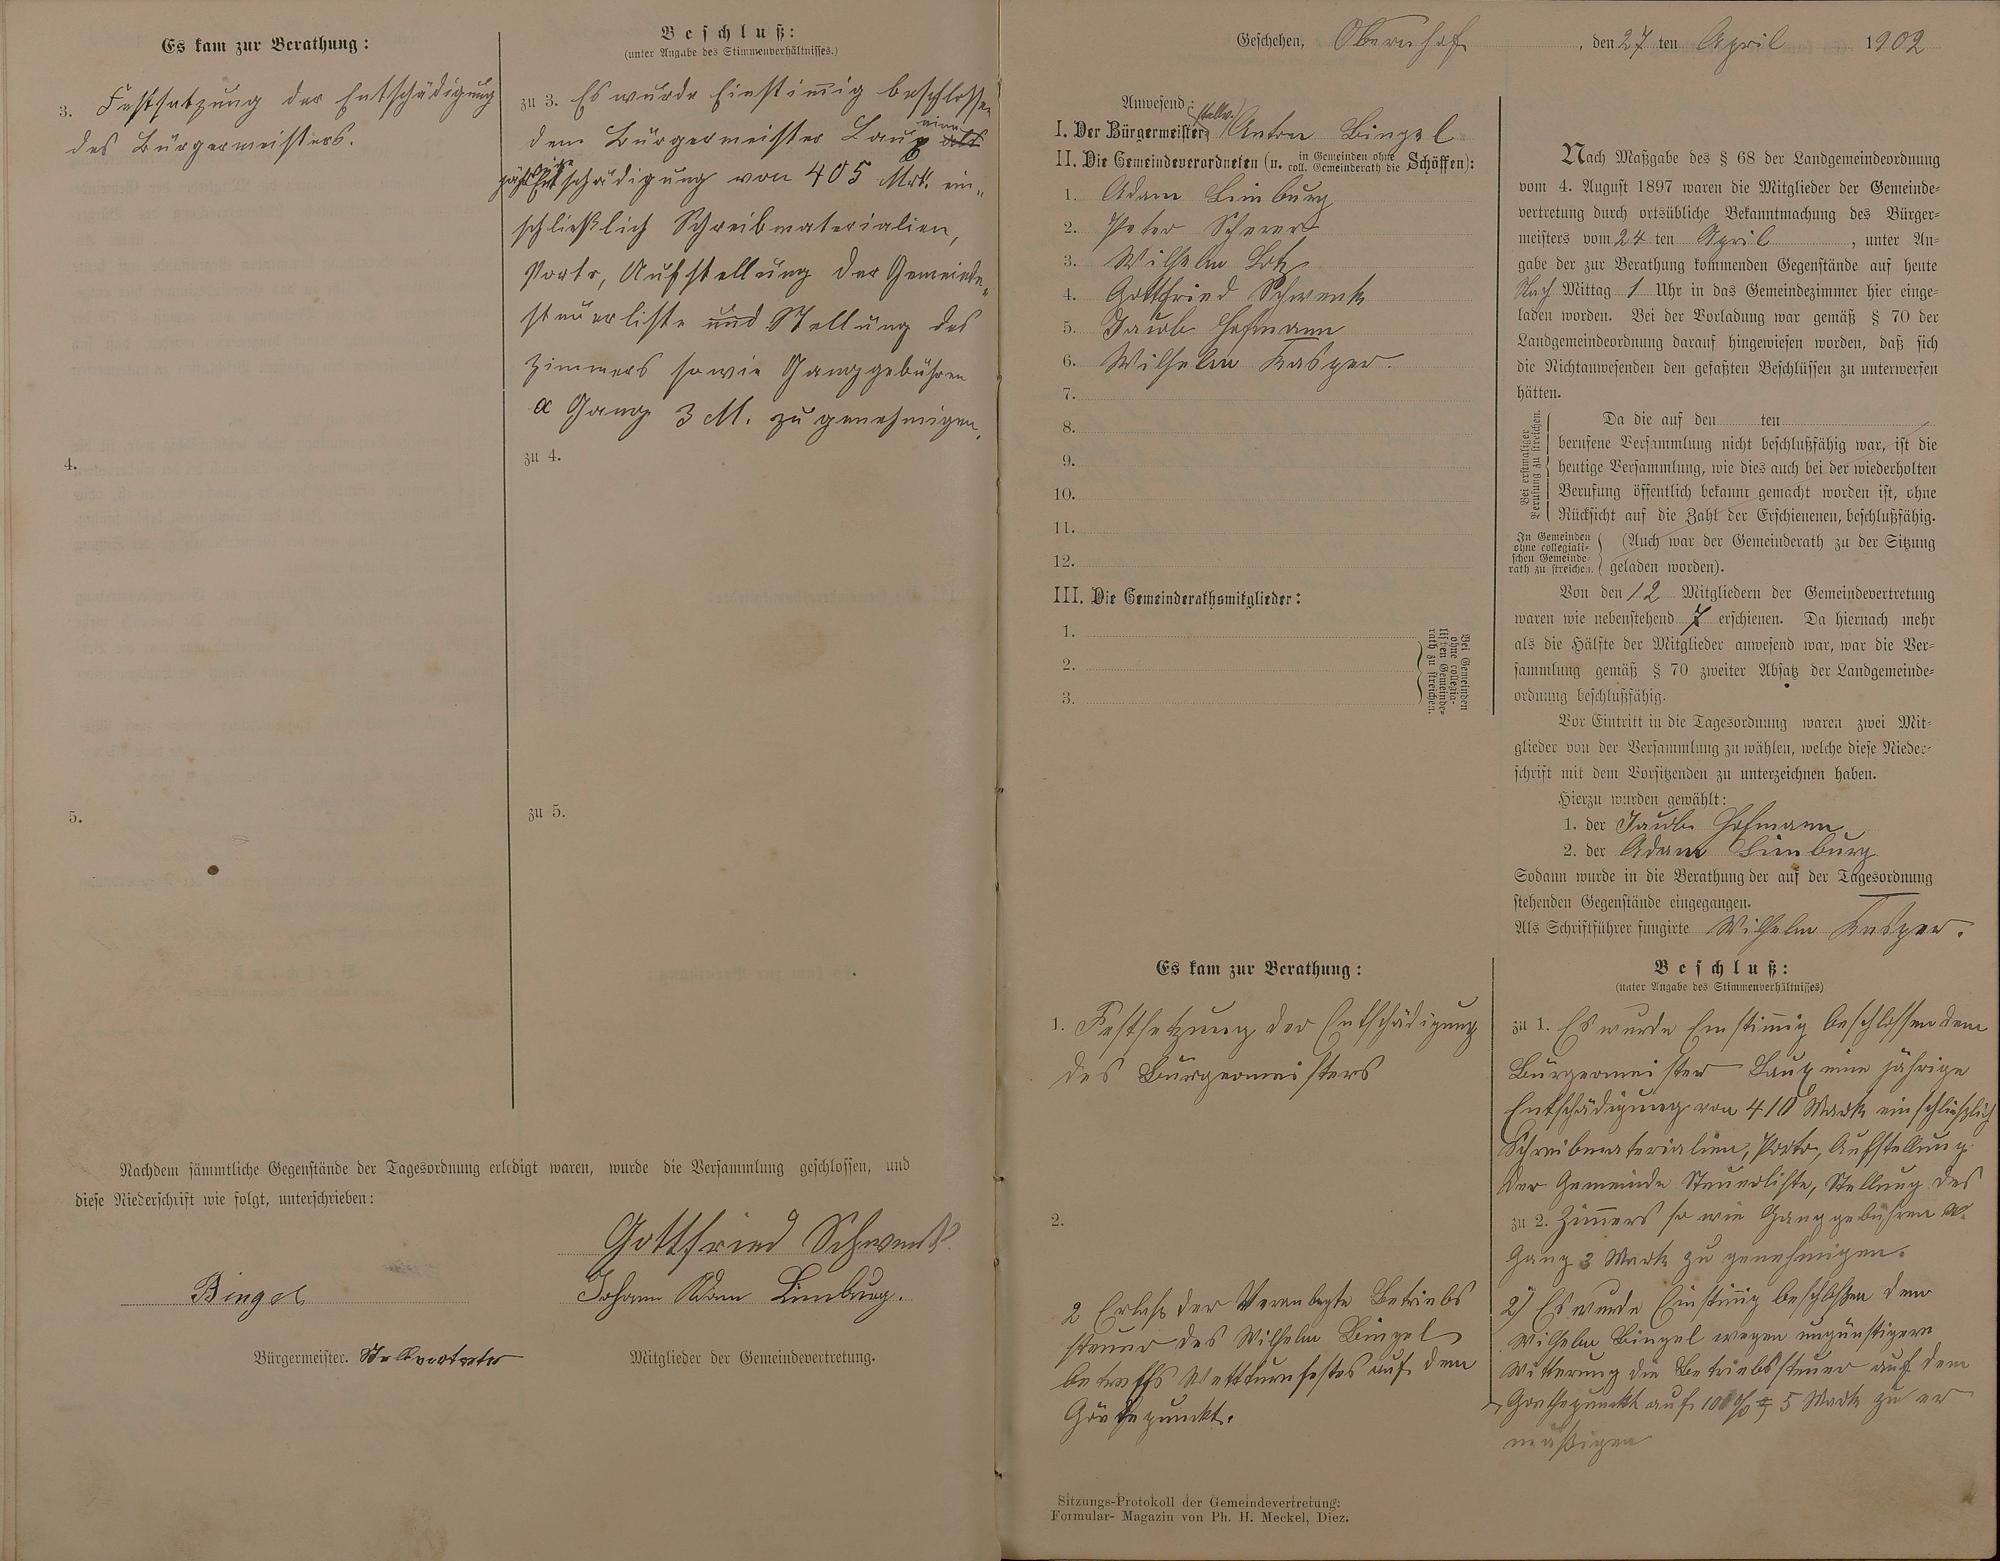 Es kam zur Berathung:
3. Festsetzung der Entschädigung
des Bürgermeisters.
4.
5.
Beschluß:
(unter Angabe des Stimmenverhältnisses.)
zu 3. Es wurde Einstimig beschlossen
dem Bürgermeister Laux eine
jährliche Entschädigung von 405 Mrk. ein-
schließlich Schreibmaterialien,
Porto, Aufstellung der Gemeinde-
steuerliste und Stellung des
Zimmers sowie Ganggebühren
a Gang 3 M. zu genehmigen.
zu 4.
zu 5.
Nachdem sämmtliche Gegenstände der Tagesordnung erledigt waren, wurde die Versammlung geschlossen, und
diese Niederschrift wie folgt, unterschrieben:
Gottfried Schwenk
Bingel
Johann Adam Limburg.
Bürgermeister. Stellvertreter
Mitglieder der Gemeindevertretung.
Geschehen, Obernhof, den 27 ten April 1902
Anwesend:
I. Der Bürgermeister, stellv. Anton Bingel
II. Die Gemeindeverordneten (u. in Gemeinden ohne coll. Gemeinderath die Schöffen):
1. Adam Limburg
2. Peter Scherer
3. Wilhelm Lotz
4. Gottfried Schwenk
5. Jacob Hofmann
6. Wilhelm Kasper.
7.
8.
9.
10.
11.
12.
III. Die Gemeinderathsmitglieder:
1.
2.
3.
Bei Gemeinden
ohne collegia-
lischen Gemeinde-
rath zu streichen.
Nach Maßgabe des § 68 der Landgemeindeordnung
vom 4. August 1897 waren die Mitglieder der Gemeinde-
vertretung durch ortsübliche Bekanntmachung des Bürger-
meisters vom 24 ten April, unter An-
gabe der zur Berathung kommenden Gegenstände auf heute
Nach Mittag 1 Uhr in das Gemeindezimmer hier einge-
laden worden. Bei der Vorladung war gemäß § 70 der
Landgemeindeordnung darauf hingewiesen worden, daß sich
die Nichtanwesenden den gefaßten Beschlüssen zu unterwerfen
hätten.
Bei erstmaliger
Berufung zu streichen.
Da die auf den ten
berufene Versammlung nicht beschlußfähig war, ist die
heutige Versammlung, wie dies auch bei der wiederholten
Berufung öffentlich bekannt gemacht worden ist, ohne
Rücksicht auf die Zahl der Erschienenen, beschlußfähig.
In Gemeinden
ohne collegiali-
schen Gemeinde-
rath zu streichen.
(Auch war der Gemeinderath zu der Sitzung
geladen worden).
Von den 12 Mitgliedern der Gemeindevertretung
waren wie nebenstehend 7 erschienen. Da hiernach mehr
als die Hälfte der Mitglieder anwesend war, war die Ver-
sammlung gemäß § 70 zweiter Absatz der Landgemeinde-
ordnung beschlußfähig.
Vor Eintritt in die Tagesordnung waren zwei Mit-
glieder von der Versammlung zu wählen, welche diese Nieder-
schrift mit dem Vorsitzenden zu unterzeichnen haben.
Hierzu wurden gewählt:
1. der Jacob Hofmann
2. der Adam Limburg
Sodann wurde in die Berathung der auf der Tagesordnung
stehenden Gegenstände eingegangen.
Als Schriftführer fungirte Wilhelm Kasper.
Es kam zur Berathung:
1. Festsetzung der Entschädigung
des Bürgermeisters
2.
2 Erlaß der Veranlagte Betriebs
steuer des Wilhelm Bingel
betreffs Wettturnfestes auf dem
Göthepunckt.
Beschluß:
(unter Angabe des Stimmenverhältnisses)
zu 1. Es wurde Einstimig beschlossen dem
Bürgermeister Laux eine jährige
Entschädigung von 410 Mark einschließlich
Schreibmaterialien, Porto, Aufstellung
der Gemeinde Steuerliste, Stellung des
zu 2. Zimers so wie Ganggebühren a.
Gang 3 Mark zu genehmigen.
2) Es wurde Einstimig beschloßen dem
Wilhelm Bingel wegen ungünstigern
Witterung die Betriebssteuer auf dem
Göthepunckt auf 100 % = 5 Mark zu er
mäßigen
Sitzungs-Protokoll der Gemeindevertretung:
Formular-Magazin von Ph. H. Meckel, Diez.